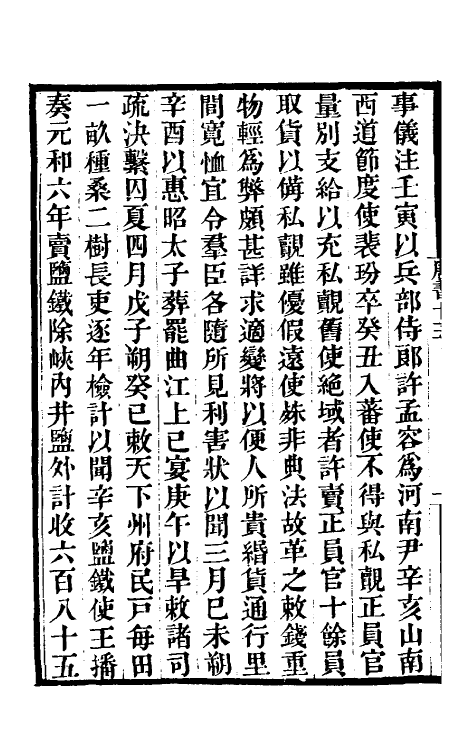 事儀注壬寅以兵部侍郎許孟容爲河南尹辛亥山南
西道節度使裴玢卒癸丑入蕃使不得與私覿正員官
量別支給以充私覿舊使絶域者許賣正員官十餘員
取貨以備私覿雖優假遠使殊非典法故革之敕錢重
物輕爲弊頗甚詳求適變將以便人所貴緡貨通行里
閭寛恤宜令羣臣各隨所見利害狀以聞三月己未朔
辛酉以惠昭太子葬罷曲江上已宴庚午以旱敕諸司
疏決繫囚夏四月戊子朔癸已敕天下州府民戸每田
一畝種桑二樹長吏逐年檢計以聞辛亥鹽鐵使王播
奏元和六年賣鹽鐵除峽內井鹽外計收六百八十五